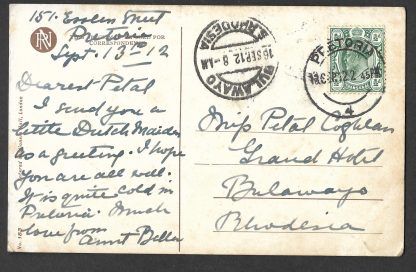 151 Esselen Street
Pretoria
Sept. 13th /12
CORRESPONDENCE
Dearest Petal
I send you a
little Dutch Maiden
as a greeting. I hope
you are all well.
It is quite cold in
Pretoria. Much
love from
Aunt Bella
BULAWAYO
S. RHODESIA
16 SEP 12 8-AM
PRETORIA
4
Miss Petal Coghlan
Grand Hotel
Bulawayo
Rhodesia